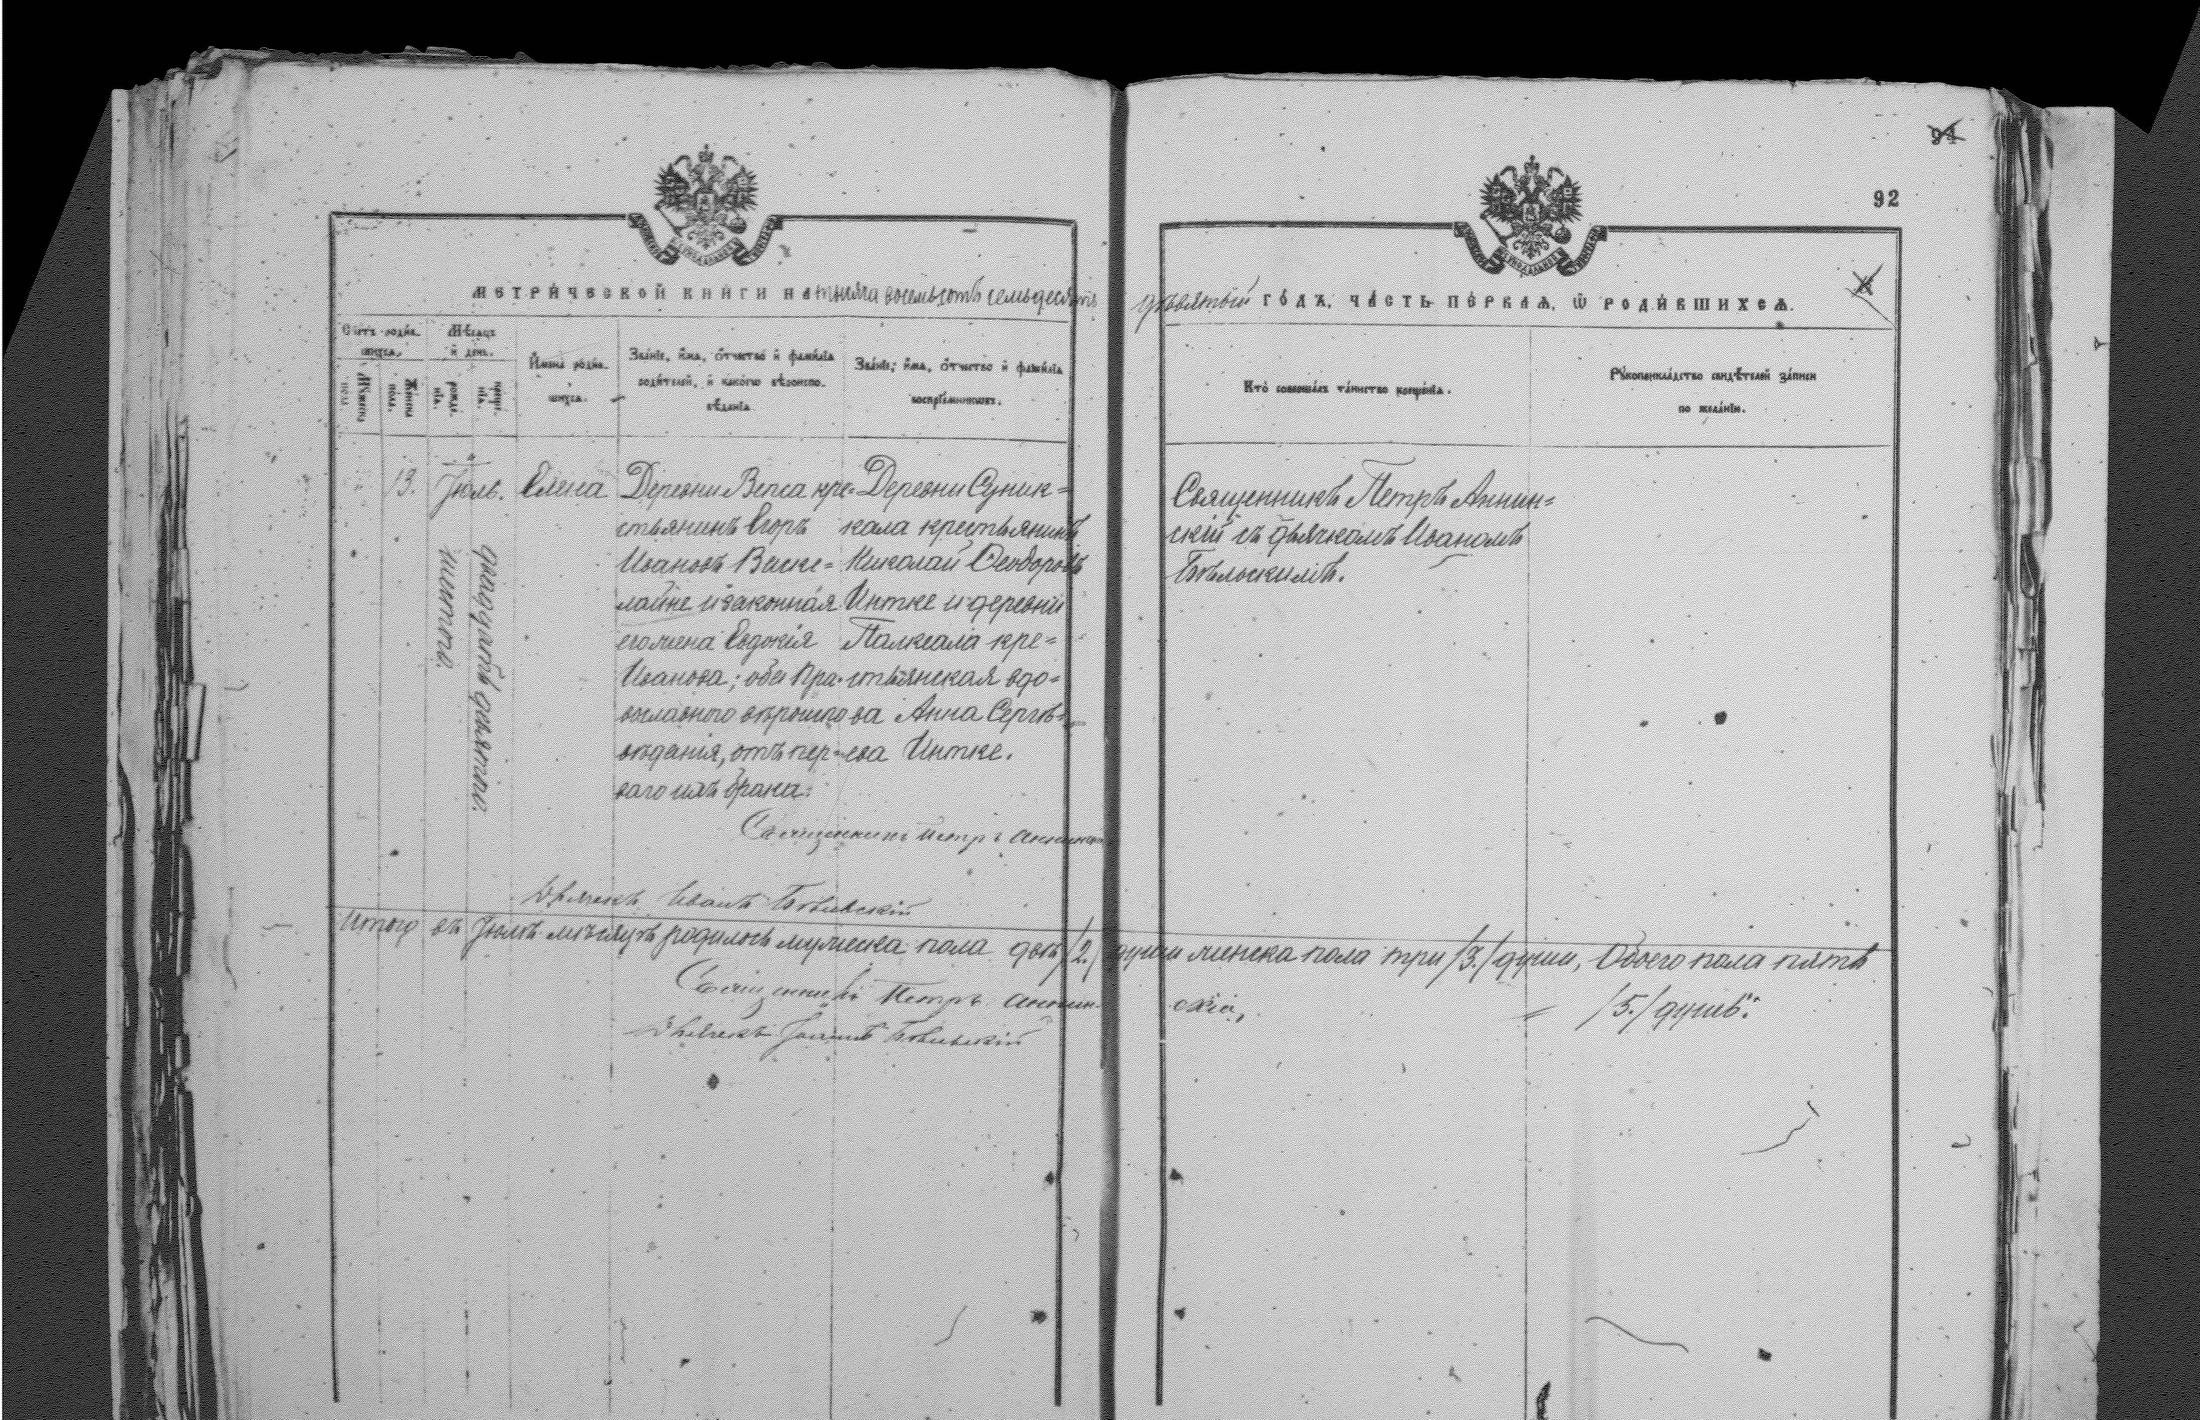 94
92
МЕТРИЧЕСКОЙ КНИГИ НА тысяча восемьсотъ семьдесятъ
девятый ГОДЪ, ЧАСТЬ ПЕРВАЯ, Ѿ РОДИВШИХСЯ.
Счетъ родив-
шихся.
Мужеска
пола
Женска
пола.
Мѣсяцъ
и день.
рожде-
нія.
креще-
нія.
Имена родив-
шихся.
Званіе, имя, отчество и фамилія
родителей, и какого вѣроиспо-
вѣданія
Званіе, имя, отчество и фамилія
воспріемниковъ.
Кто совершалъ таинство крещенія.
Рукоприкладство свидѣтелей записи
по желанію.
13.
Іюль.
шестого.
двадцать девятого.
Елена
Деревни Вепса кре-
стьянинъ Егоръ
Ивановъ Виске-
лайне и законная
его жена Евдокія
Иванова; оба пра-
вославного вѣроиспо
вѣданія, отъ пер-
ваго ихъ брака.
Деревни Суник-
кала крестьянинъ
Николай Ѳеодоровъ
Интке и деревни
Палкеала кре-
стьянская вдо-
ва Анна Сергѣ-
ева Интке.
Священникъ Петръ Аннин-
скій съ дьячкомъ Иваномъ
Бѣльскимъ.
Священникъ Петръ Аннинскій
Дьячекъ Иванъ Бѣльскій
Итого въ Іюлѣ мѣсяцѣ родилось мужеска пола двѣ /2./ души женска пола три /3./ души, Обоего пола пять
/5./ душъ.
Священникъ Петръ Аннин-
скій,
Дьячекъ Іоаннъ Бѣльскій